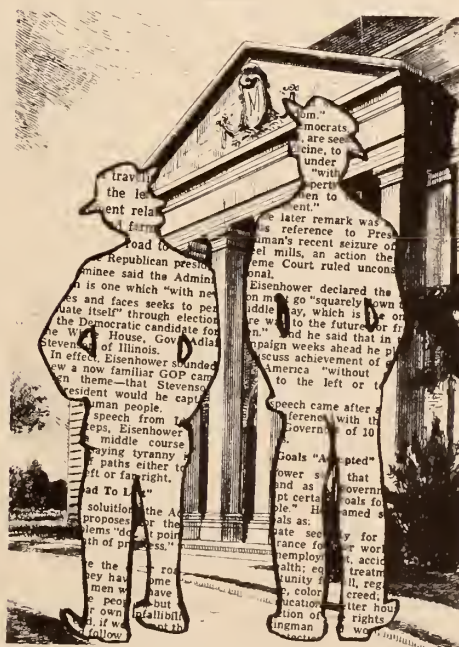 the le
ent rela
farm
road to
Republican presid
minee said the Admin
n is one which "with ne
es and faces seeks to per
uate itself" through election
the Democratic candidate for
the White House, Gov. Adlai
Steven of Illinois.
In effect, Eisenhower sounded
ew a now familiar GOP cam
gn theme—that Stevenso
resident would be capt
man people.
speech from
teps, Eisenhower
middle course
aying tyranny
paths either to
eft or far right.
ad To L
solution the Ad
proposes or the
lems "do point
th of pro ess."
re the roa
ey have ome
men w have
e peop but
r own nfallibili
d, if we
follow
om."
emocrats,
are see
cine, to
under
"with
perty
en to
ent."
e later remark was
s reference to Pres
uman's recent seizure of
eel mills, an action the
eme Court ruled uncons
onal.
Eisenhower declared the
on m go "squarely own t
ddle ay, which is e on
way to the future or fr
n." nd he said that in
mpaign weeks ahead he p
scuss achievement of
America "without
to the left or t
peech came after a
ference with the
Govern of 10
Goals "A pted"
ower s that
nd as overnm
pt certa oals for
ple." He amed s
als as:
ate sec y for
rance fo r work
nemploy , accid
alth; eq treatm
tunity f ll, reg
, color creed;
ucation tter hou
ction of rights
ngman wo